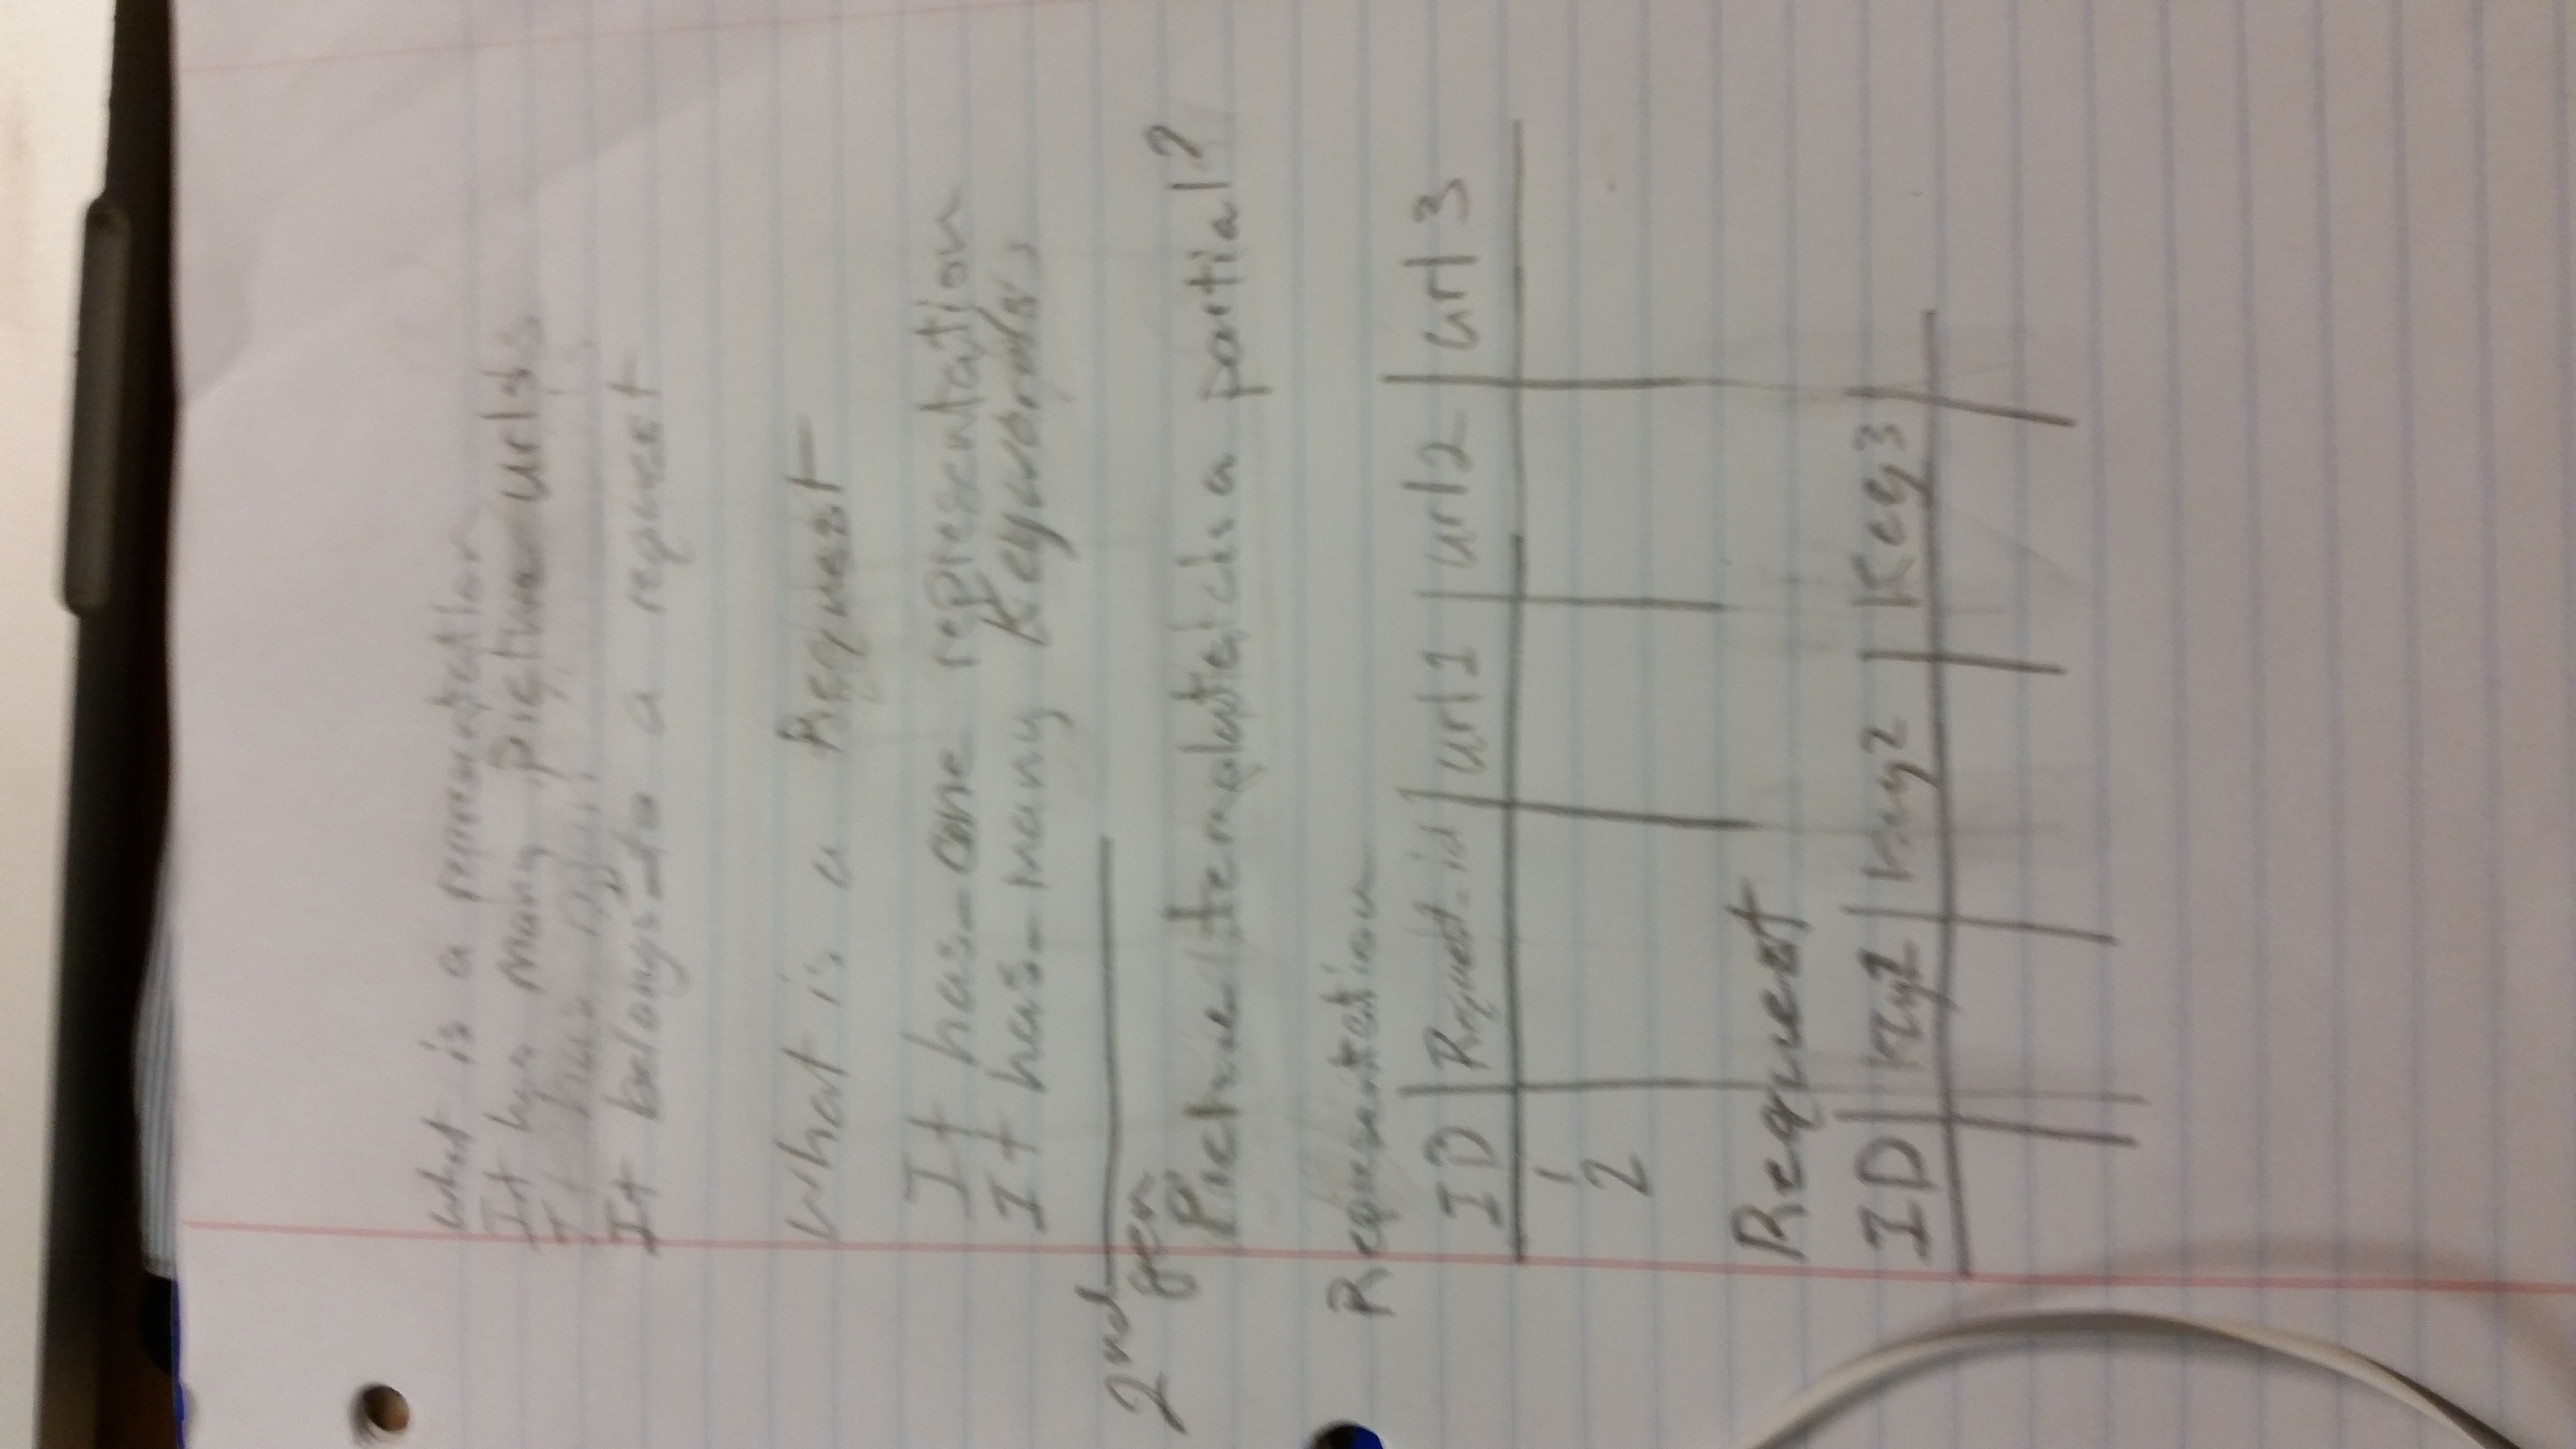 What is a representation
It has many picture urls
It has
It belongs_to a request
What is a Request
It has_one representation
It has_many Keywords
2nd gen
Picture template is a partial?
Representation
ID Request_id url1 url2 url3
1
2
Request
ID Key1 Key2 Key3